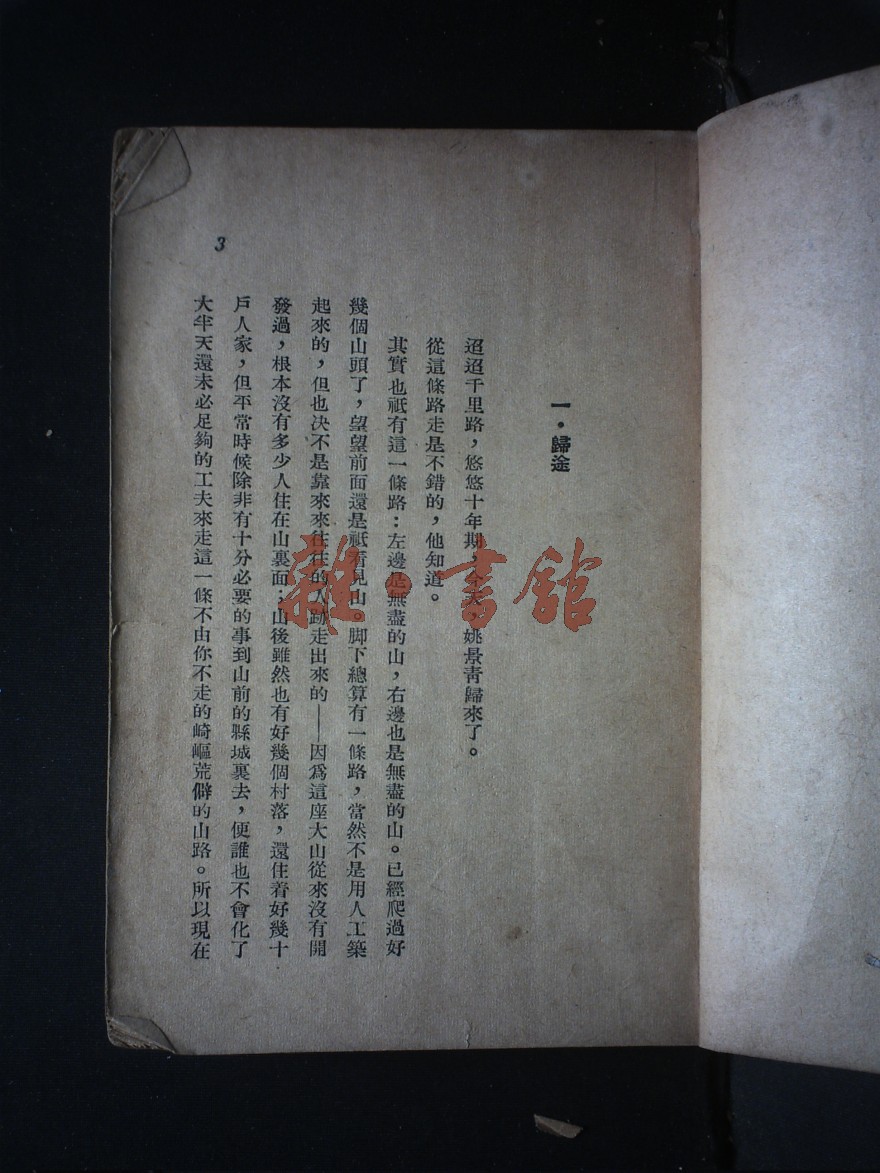 一．歸途
迢迢千里路，悠悠十年期，今天，姚景青歸來了。
從這條路走是不錯的，他知道。
其實也祇有這一條路：左邊是無盡的山，右邊也是無盡的山。已經爬過好
幾個山頭了，望望前面還是祇看見山。脚下總算有一條路，當然不是用人工築
起來的，但也決不是靠來來往往的人跡走出來的——因爲這座大山從來沒有開
發過，根本沒有多少人住在山裏面；山後雖然也有好幾個村落，還住着好幾十
戶人家，但平常時候除非有十分必要的事到山前的縣城裏去，便誰也不會化了
大半天還未必足夠的工夫來走這一條不由你不走的崎嶇荒僻的山路。所以現在
3
雜·書館